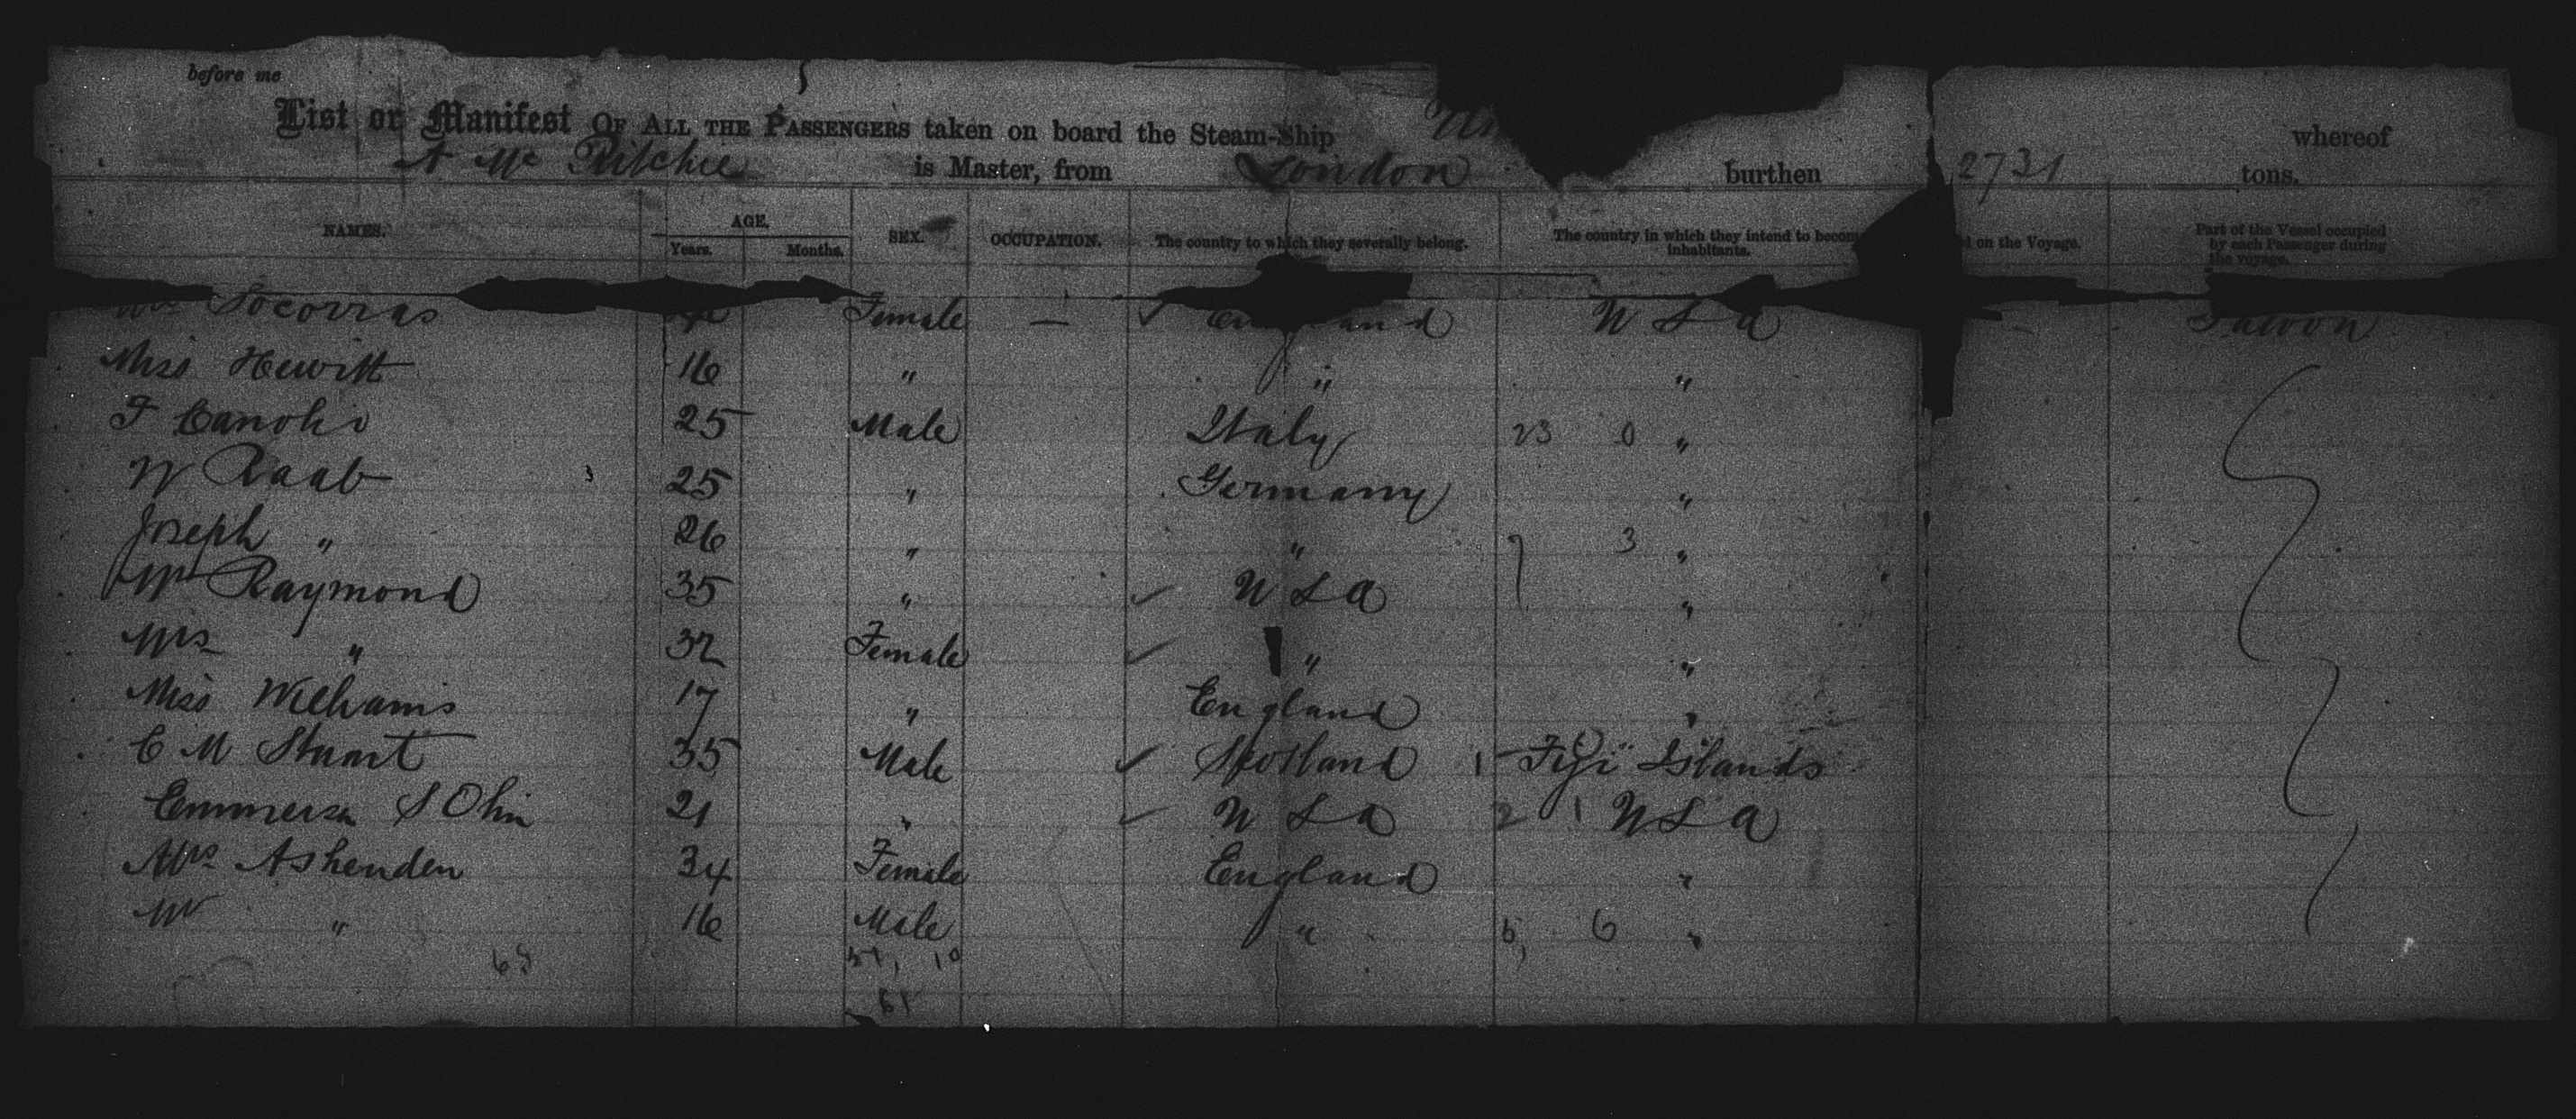 before me
List or Manifest OF ALL THE PASSENGERS taken on board the Steam-Ship whereof
A Mc Ritchie is Master, from London burthen 2731 tons.
NAMES. AGE. Years. Months. SEX. OCCUPATION. The country to which they severally belong. The country in which they intend to become inhabitants. on the Voyage. Part of the Vessel occupied by each Passenger during the voyage.
Socorras Female — ✓ England U S A Saloon
Miss Hewitt 16 " " "
F 25 Male Italy 23 0 "
W Raab 25 " Germany "
Joseph " 26 " " 3 "
Mr Raymond 35 " ✓ U S A "
Mrs " 32 Female ✓ " "
Miss Williams 17 " England "
C M Stuart 35 Male ✓ Scotland 1 Fiji Islands
Emmerson S Olin 21 " ✓ U S A 2 1 U S A
Mrs Ashenden 34 Female England "
Mr " 16 Male " 5, 6 "
51, 10
61